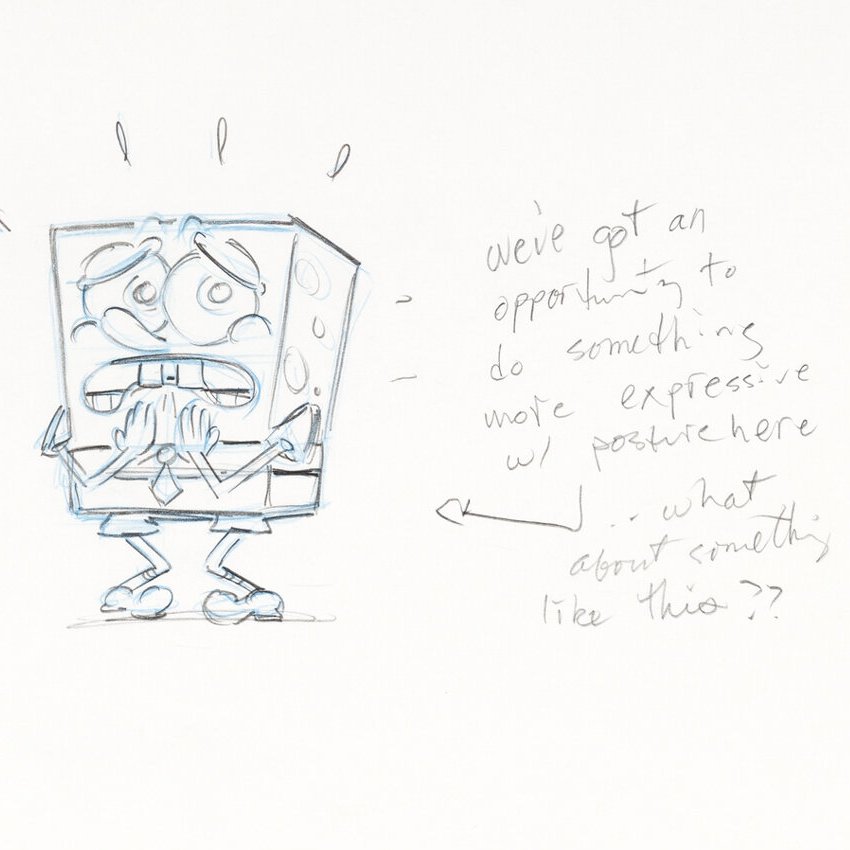 we've got an
opportunity to
do something
more expressive
w/ posture here
...what
about something
like this??